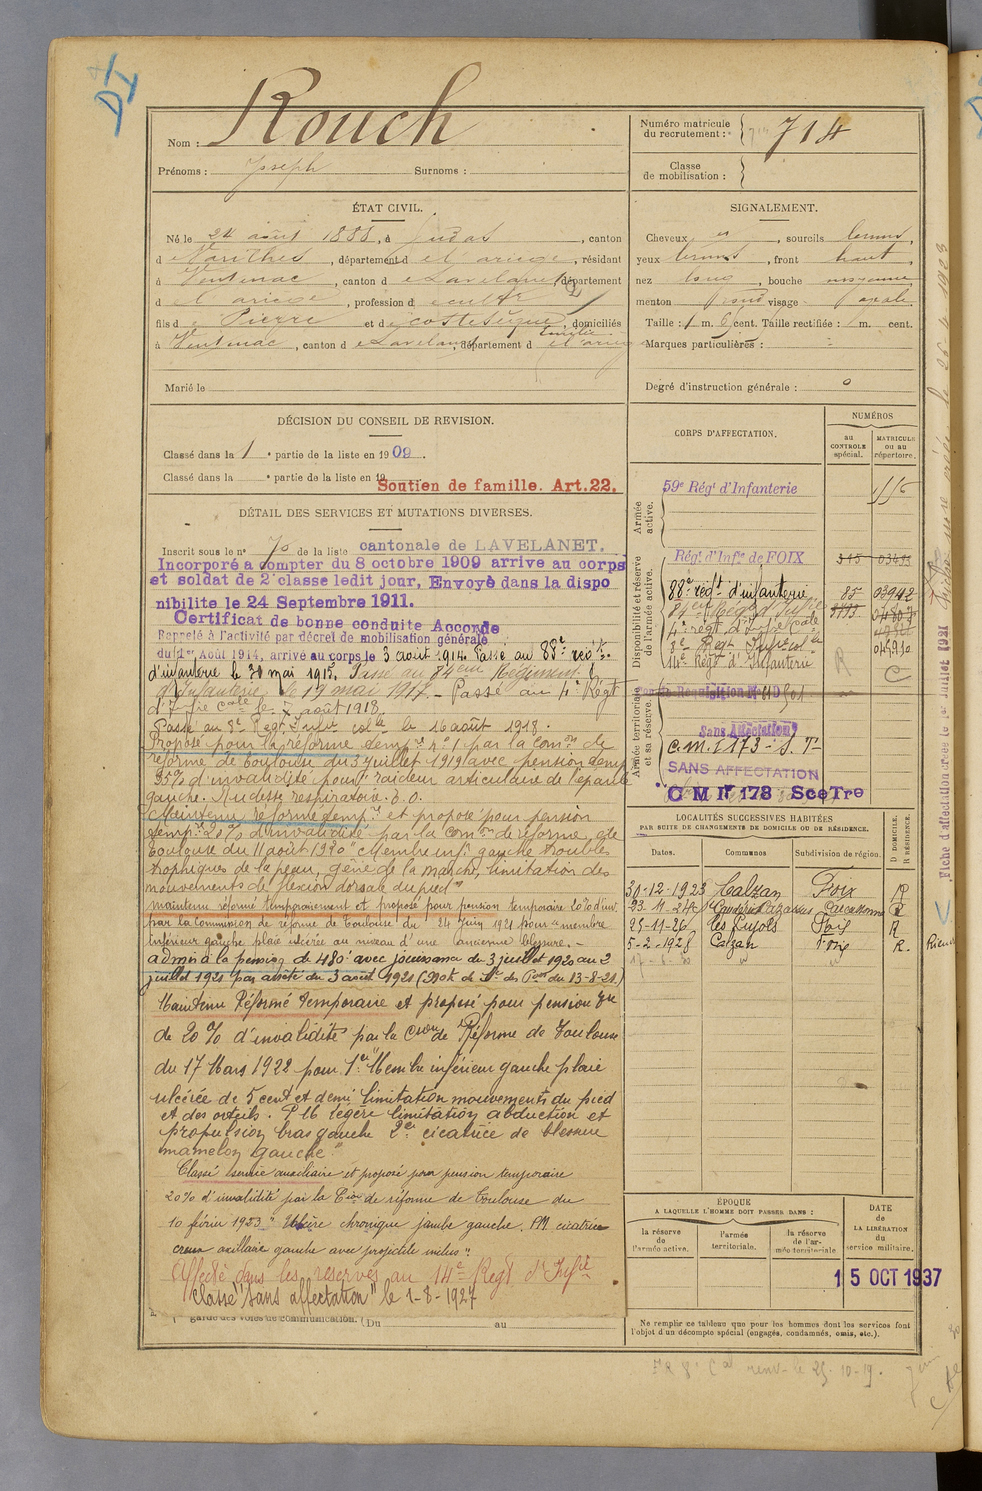 Nom : Rouch
Prénoms : Joseph Surnoms :
Numéro matricule du recrutement : 714
Classe de mobilisation :
ÉTAT CIVIL.
Né le 24 août 1888, à Gudas, canton
d Varilhes, département d e l'ariege, résidant
à Ventenac, canton d e Lavelanet, département
d e l'ariege, profession d cultr
fils d e Pierre et d e costeseque Emilie, domiciliés
à Ventenac, canton d e Lavelanet, département d e l'ariege
Marié le
SIGNALEMENT.
Cheveux et, sourcils bruns,
yeux bruns, front haut,
nez long, bouche moyenne
menton rond visage ovale.
Taille : 1 m. 6 cent. Taille rectifiée : 1 m. cent.
Marques particulières :
Degré d'instruction générale : 0
DÉCISION DU CONSEIL DE REVISION.
Classé dans la 1e partie de la liste en 1909.
Classé dans la e partie de la liste en 19
Soutien de famille. Art.22.
DÉTAIL DES SERVICES ET MUTATIONS DIVERSES.
Inscrit sous le n° 70 de la liste cantonale de LAVELANET.
Incorporé à compter du 8 octobre 1909 arrive au corps
et soldat de 2e classe ledit jour, Envoyé dans la dispo
nibilite le 24 Septembre 1911.
Certificat de bonne conduite Accordé
Rappelé à l'activité par décret de mobilisation générale
du 1er Août 1914, arrivé au corps le 3 août 1914. Passé au 88e rég.
d'infanterie le 30 mai 1915. Passé au 84ème Régiment
d'Infanterie, le 19 mai 1917. - Passé au 4e Régt
d'Infie cole le 7 août 1918.
Passé au 8e Regt Infie colle le 16 août 1918.
Proposé pour la réforme tempre n° 1 par la Comon de
réforme de Toulouse du 3 juillet 1919 avec pension temp
35% d'invalidité pour "raideur articulaire de l'épaule
gauche. Rudesse respiratoire. E.O.
Maintenu réformé tempre et proposé pour pension
tempre 20% d'invalidité par la Comon de réforme de
Toulouse du 11 août 1920 "Membre inf. gauche troubles
trophiques de la peau, gêne de la marche, limitation des
mouvements de flexion dorsale du pied"
maintenu réformé temporairement et proposé pour pension temporaire 20% d'inv
par la Commission de réforme de Toulouse du 24 Juin 1921 pour "membre
inférieur gauche plaie ulcérée au niveau d'une ancienne blessure. -
admis à la pension de 480f avec jouissance du 3 juillet 1920 au 2
juillet 1921 par arrêté du 3 août 1921
Maintenu Réformé Temporaire et proposé pour pension
de 20% d'invalidité par la Cson de Réforme de Toulouse
du 17 Mars 1922 pour 1er "Membre inférieur gauche plaie
ulcérée de 5 cent et demi limitation mouvements du pied
et des orteils. P 16 légère limitation abduction et
propulsion bras gauche 2e cicatrice de blessure
mamelon gauche"
Classé service auxiliaire et proposé pour pension temporaire
20% d'invalidité par la Cion de réforme de Toulouse du
10 février 1923 "Ulcère chronique jambe gauche. PM cicatrice
creux axillaire gauche avec projectile inclus".
Affecté dans les réserves au 14e Regt d'Infie
Classé "Sans affectation" le 1-8-1927
garde des voies de communication. (Du au
CORPS D'AFFECTATION.
NUMÉROS
au CONTROLE spécial.
MATRICULE ou au répertoire.
Armée active.
59e Régt d'Infanterie 1116
Disponibilité et réserve de l'armée active.
Régt d'Infie de FOIX
88e régt d'infanterie 85 03942
84eme Regt d'Infie
4e régt d'Infie Cole
8e Regt Infie colle
14e Régt d'Infanterie
Armée territoriale et sa réserve.
Sans Affectation
C.M. I 173 - S. T-
SANS AFFECTATION
C M I 178 SceTre
LOCALITÉS SUCCESSIVES HABITÉES
PAR SUITE DE CHANGEMENTS DE DOMICILE OU DE RÉSIDENCE.
Dates. Communes Subdivision de région. D DOMICILE. R RÉSIDENCE.
30-12-1923 Calzan Foix R
23-11-24 Carcassonne R
25-11-26 les Pujols Foix R
5-2-1928 Calzan Foix R.
ÉPOQUE
A LAQUELLE L'HOMME DOIT PASSER DANS :
la réserve de l'armée active.
l'armée territoriale.
la réserve de l'armée territoriale
DATE de LA LIBÉRATION du service militaire.
15 OCT 1937
Ne remplir ce tableau que pour les hommes dont les services font
l'objet d'un décompte spécial (engagés, condamnés, omis, etc.).
renv. le 25-10-19.
Fiche d'affectation créée le 1er Juillet 1931